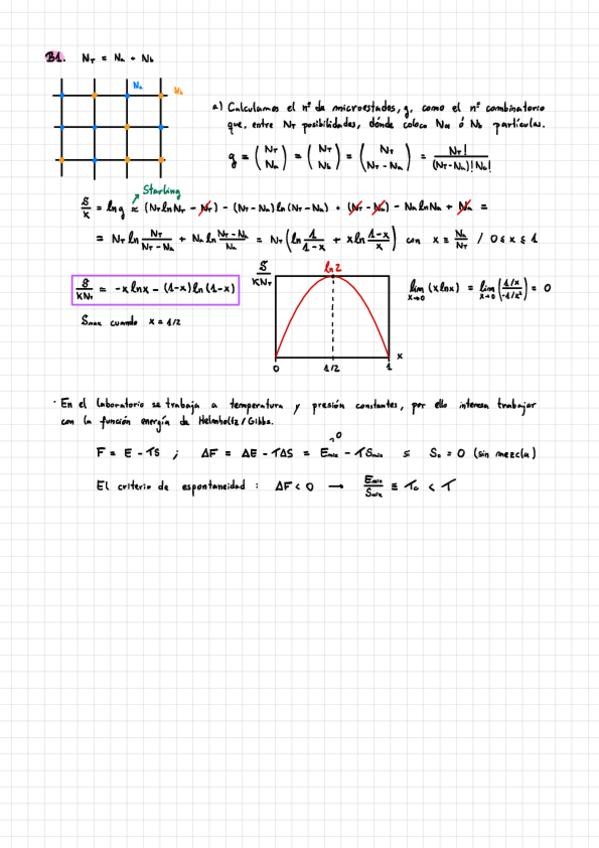 B1. N_T = N_a + N_b
N_a
N_b
a) Calculamos el nº de microestados, g, como el nº combinatorio
que, entre N_T posibilidades, dónde coloco N_a ó N_b partículas.
g = (N_T / N_a) = (N_T / N_b) = (N_T / N_T - N_a) = N_T! / (N_T-N_a)! N_a!
Starling
S/K = ln g ≈ (N_T ln N_T - N_T) - (N_T - N_a) ln (N_T - N_a) + (N_T - N_a) - N_a ln N_a + N_a =
= N_T ln N_T/(N_T - N_a) + N_a ln (N_T - N_a)/N_a = N_T (ln 1/(1-x) + x ln (1-x)/x) con x ≡ N_a/N_T / 0 ≤ x ≤ 1
S/KN_T = -x ln x - (1-x) ln (1-x)
S_max cuando x = 1/2
S/KN_T
ln 2
0 1/2 1 x
lim x→0 (x ln x) = lim x→0 (1/x / -1/x²) = 0
· En el laboratorio se trabaja a temperatura y presión constantes, por ello interesa trabajar
con la función energía de Helmholtz/Gibbs.
F = E - TS ; ΔF = ΔE - TΔS = E_mix - TS_mix S_0 = 0 (sin mezcla)
El criterio de espontaneidad : ΔF < 0 → E_mix/S_mix ≡ T_c < T